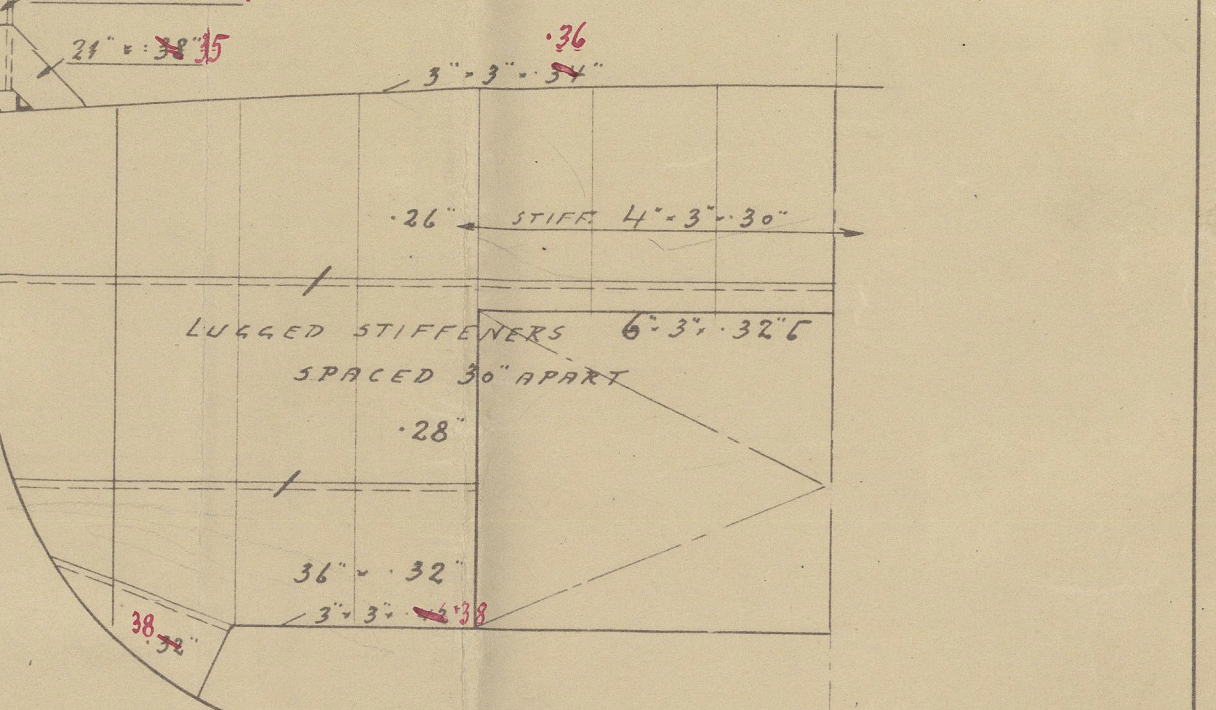 21" × .38" 35
.36
3" × 3" × .34"
.26"
STIFF. 4" × 3" × .30"
LUGGED STIFFENERS
6" × 3" × .32" [
SPACED 30" APART
.28"
36" × .32"
3" × 3" × .42 .38
38
.32"